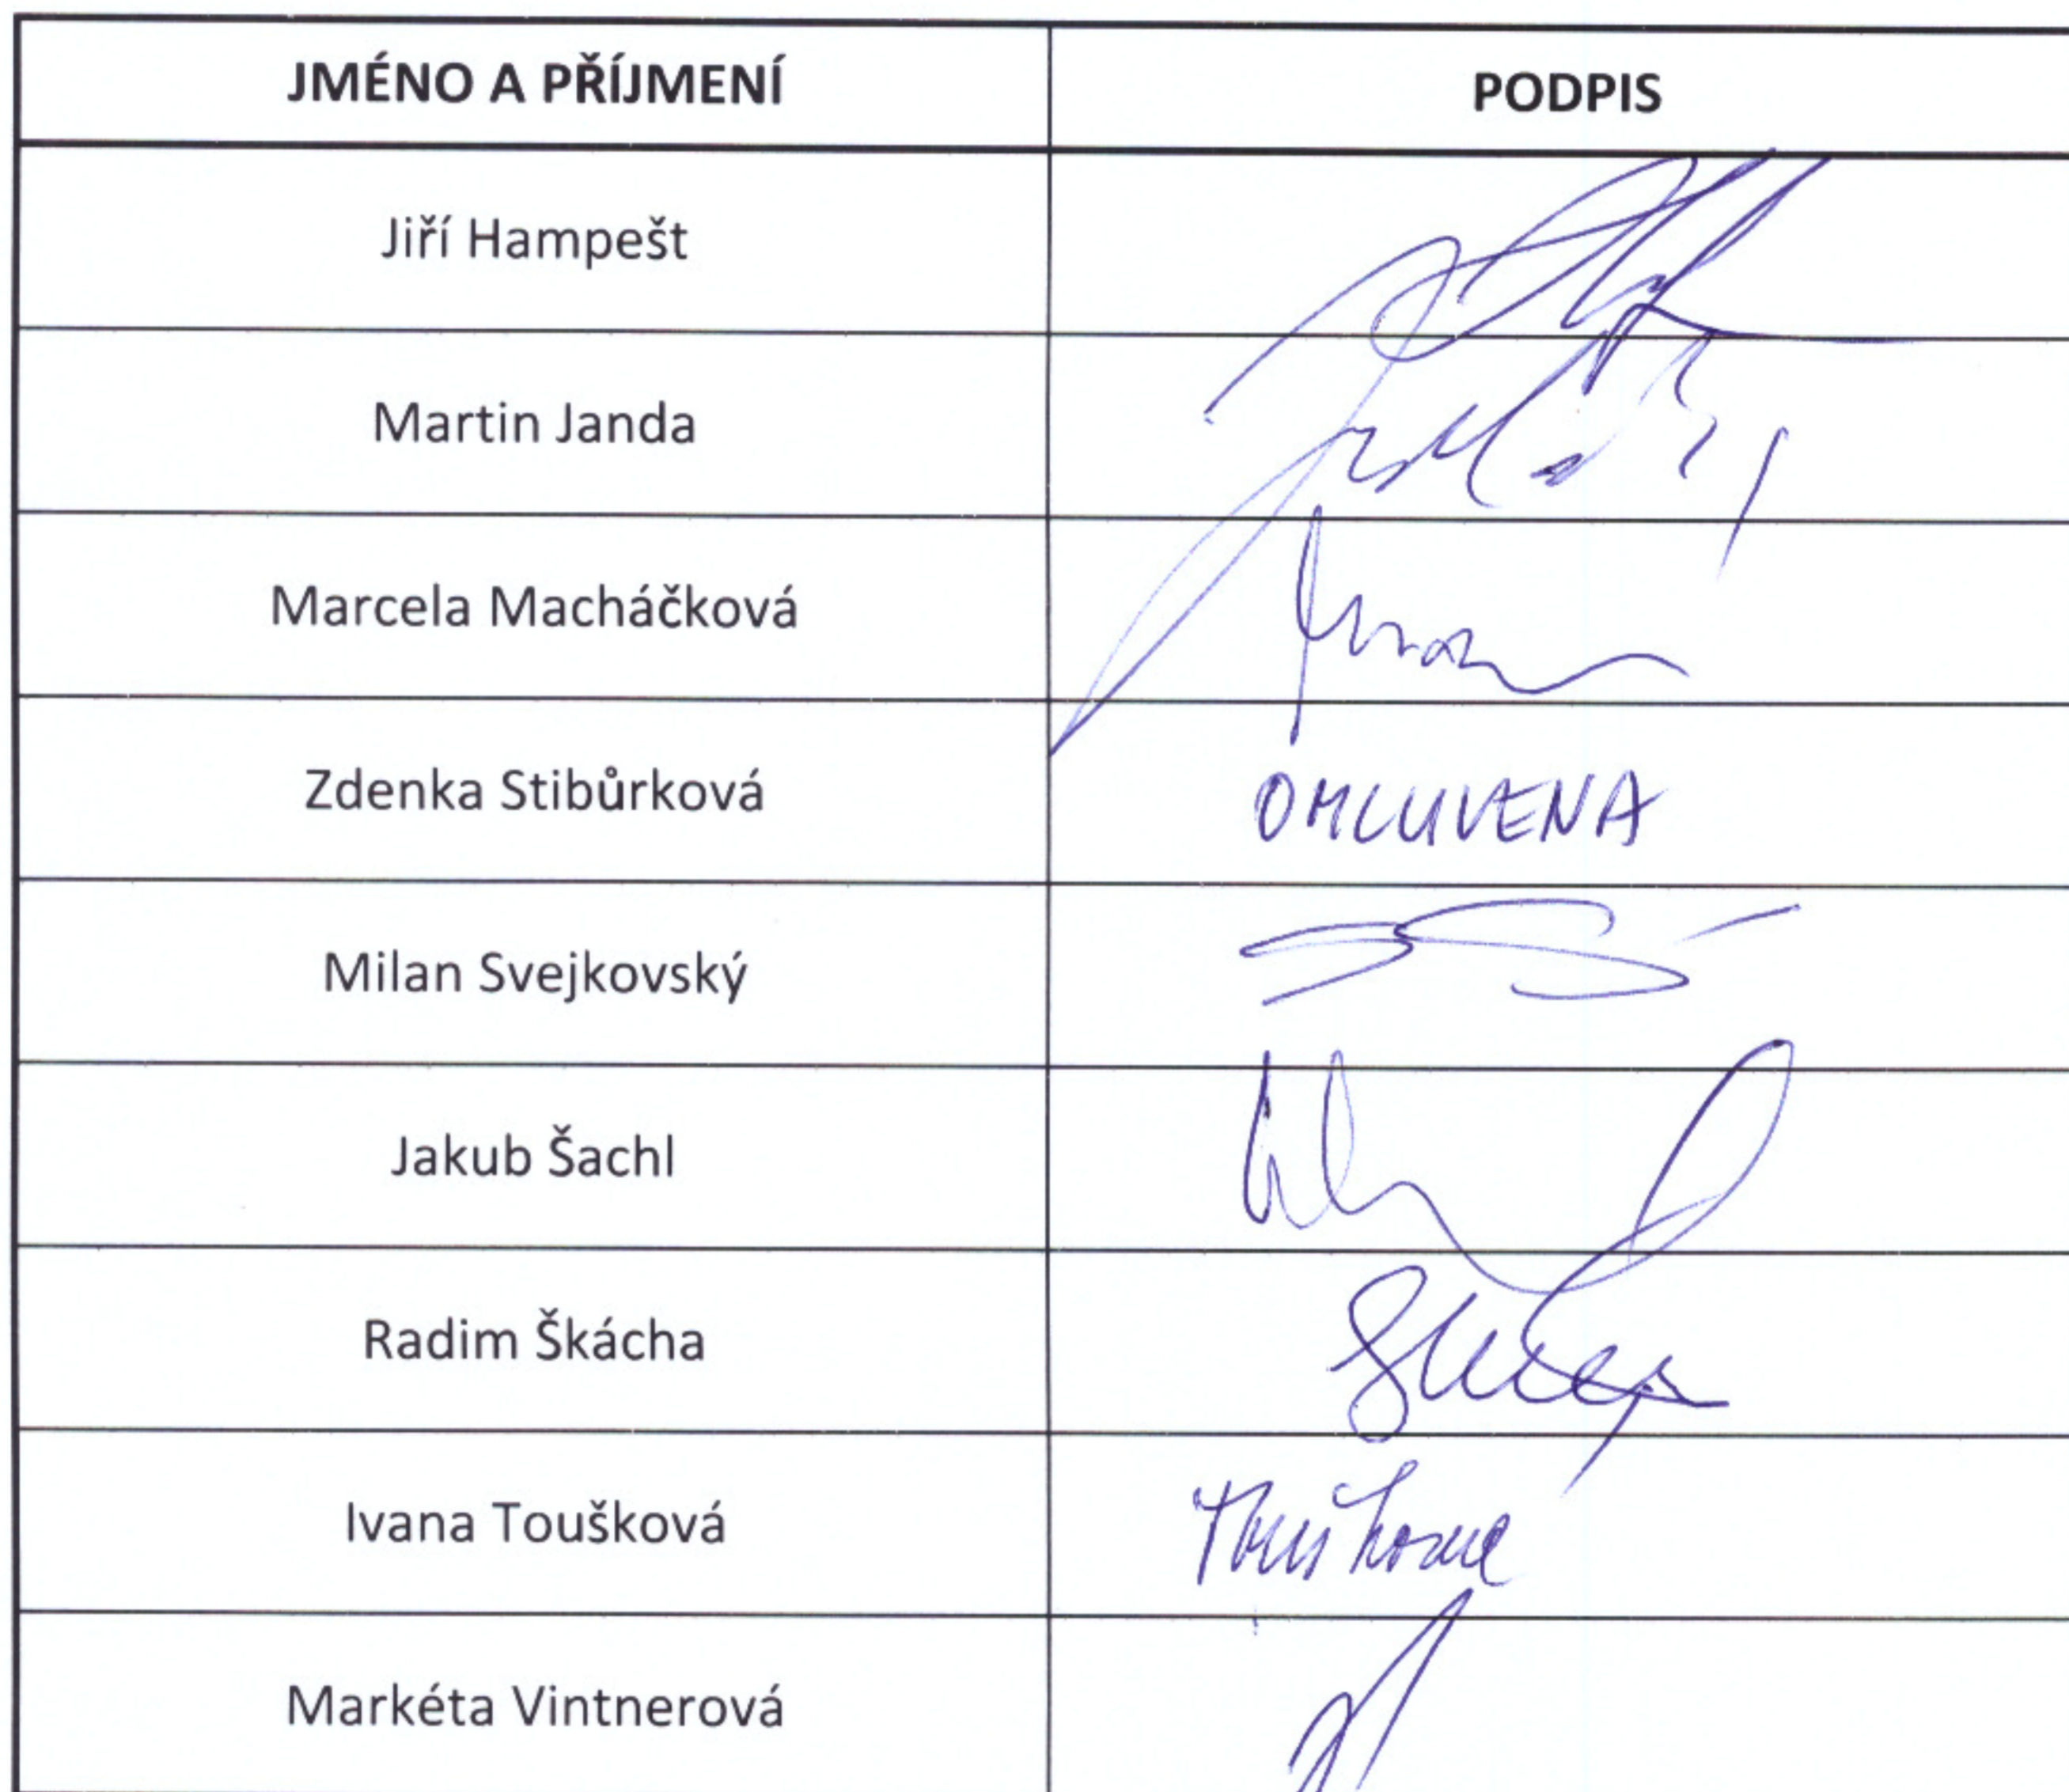 JMÉNO A PŘÍJMENÍ PODPIS
Jiří Hampešt
Martin Janda
Marcela Macháčková
Zdenka Stibůrková OMLUVENA
Milan Svejkovský
Jakub Šachl
Radim Škácha
Ivana Toušková
Markéta Vintnerová